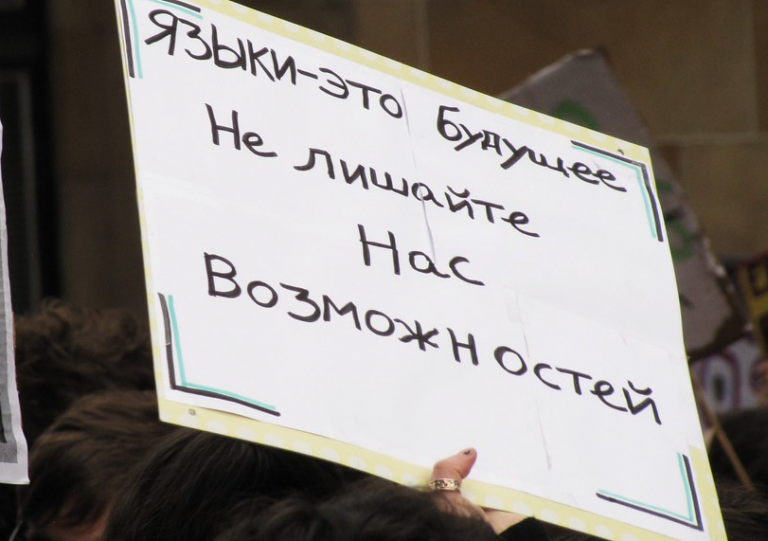 Языки-это будущее
Не лишайте
Нас
Возможностей